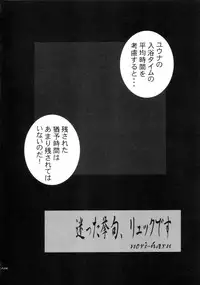 ユウナの
入浴タイムの
平均時間を
考慮すると・・
残された
猶予時間は
あまり残されては
いないのだ！
迷った挙句、リュックです
nori-haru